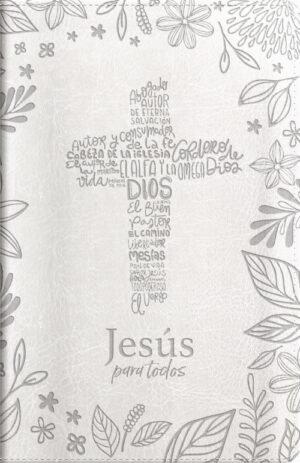 Abogado
AUTOR
DE ETERNA
SALVACIÓN
Autor y Consumador
de la fe
CABEZA DE LA IGLESIA
Cordero de
Dios
El autor de
la
vida
EL ALFA Y LA OMEGA
DIOS
El Buen
Pastor
EL CAMINO
Libertador
MESÍAS
PAN DE VIDA
TODOPODEROSO
El Verbo
Jesús
para todos